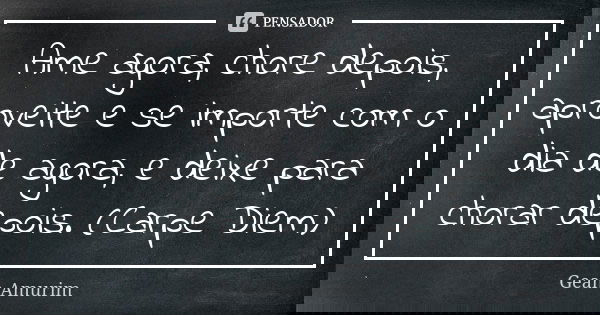 PENSADOR
Ame agora, chore depois,
aproveite e se importe com o
dia de agora, e deixe para
chorar depois. (Carpe Diem)
Gean Amurim